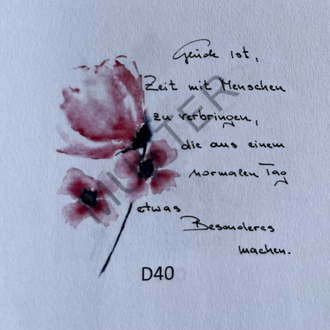 Glück ist,
Zeit mit Menschen
zu verbringen,
die aus einem
normalen Tag
etwas
Besonderes
machen.
MUSTER
D40